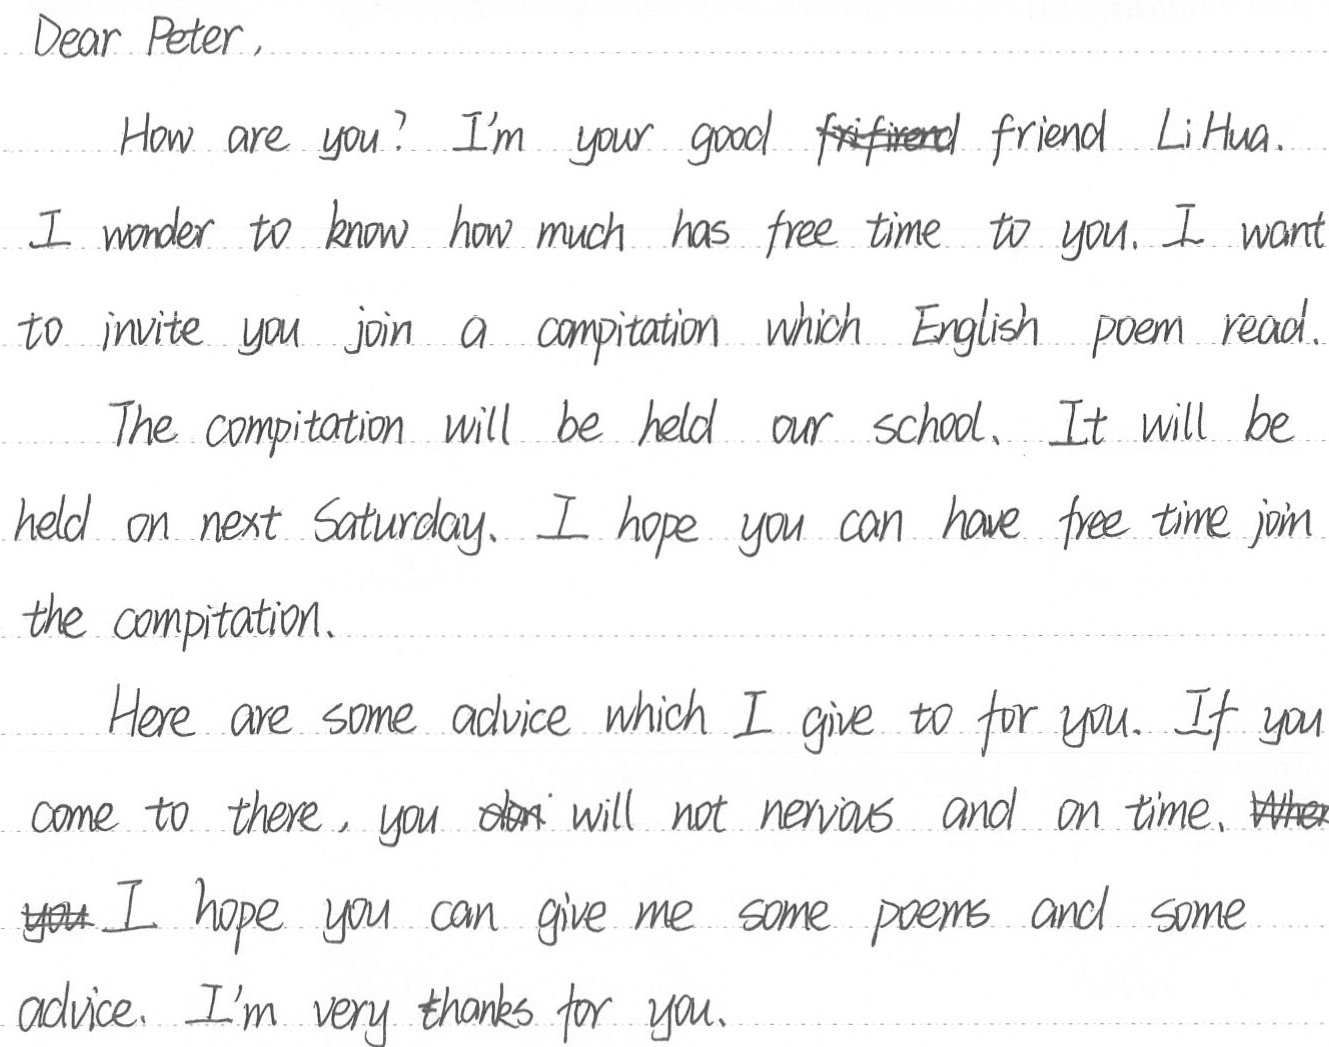 Dear Peter,
How are you? I'm your good friend Li Hua.
I wonder to know how much has free time to you. I want
to invite you join a compitation which English poem read.
The compitation will be held our school. It will be
held on next Saturday. I hope you can have free time join
the compitation.
Here are some advice which I give to for you. If you
come to there, you will not nervous and on time.
I hope you can give me some poems and some
advice. I'm very thanks for you.